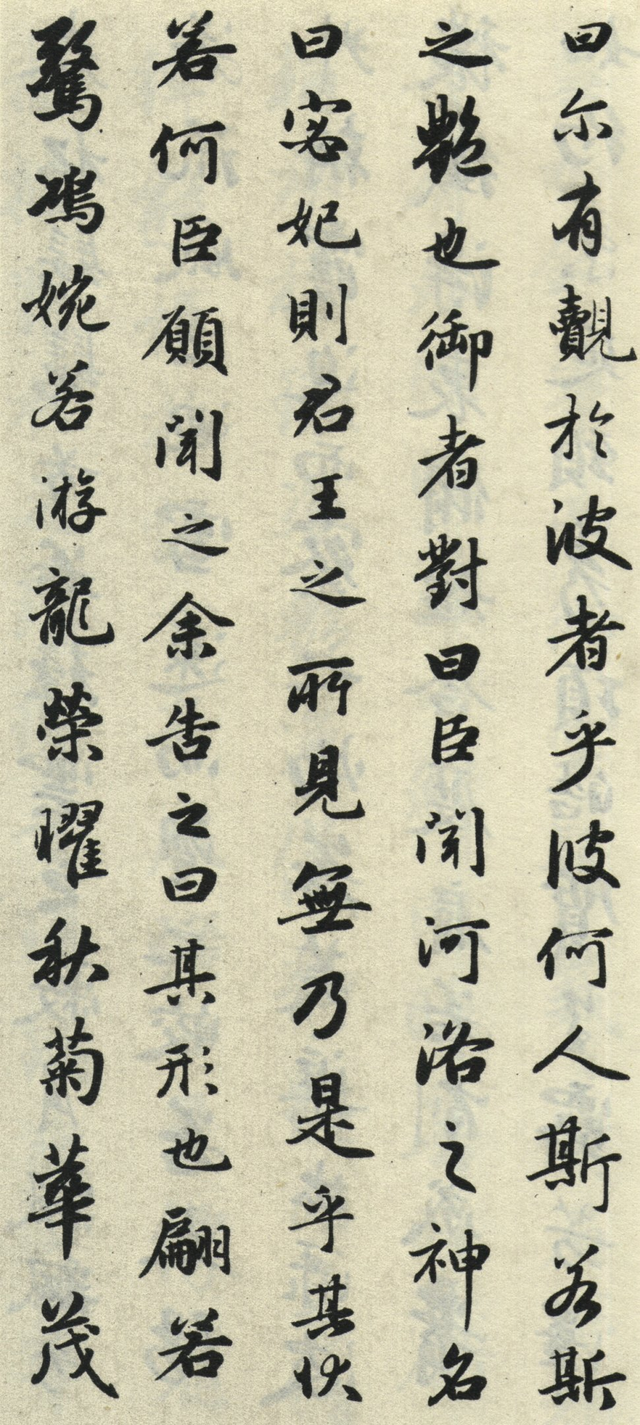 曰尔有覿於彼者乎彼何人斯若斯
之艷也御者對曰臣聞河洛之神名
曰宓妃則君王之所見無乃是乎其状
若何臣願聞之余告之曰其形也翩若
驚鴻婉若游龍榮曜秋菊華茂